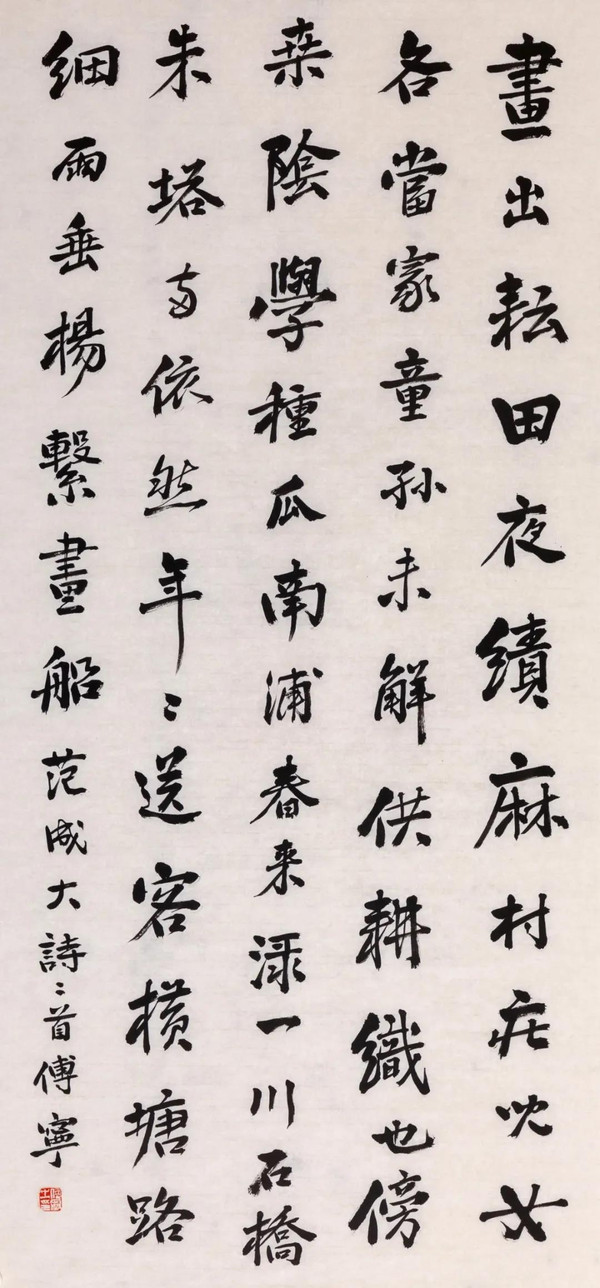 畫出耘田夜績麻村庄兒女
各當家童孫未解供耕織也傍
桒陰學種瓜南浦春来渌一川石橋
朱塔両依然年〻送客横塘路
細雨垂楊繫畫船 范成大詩二首傅寧